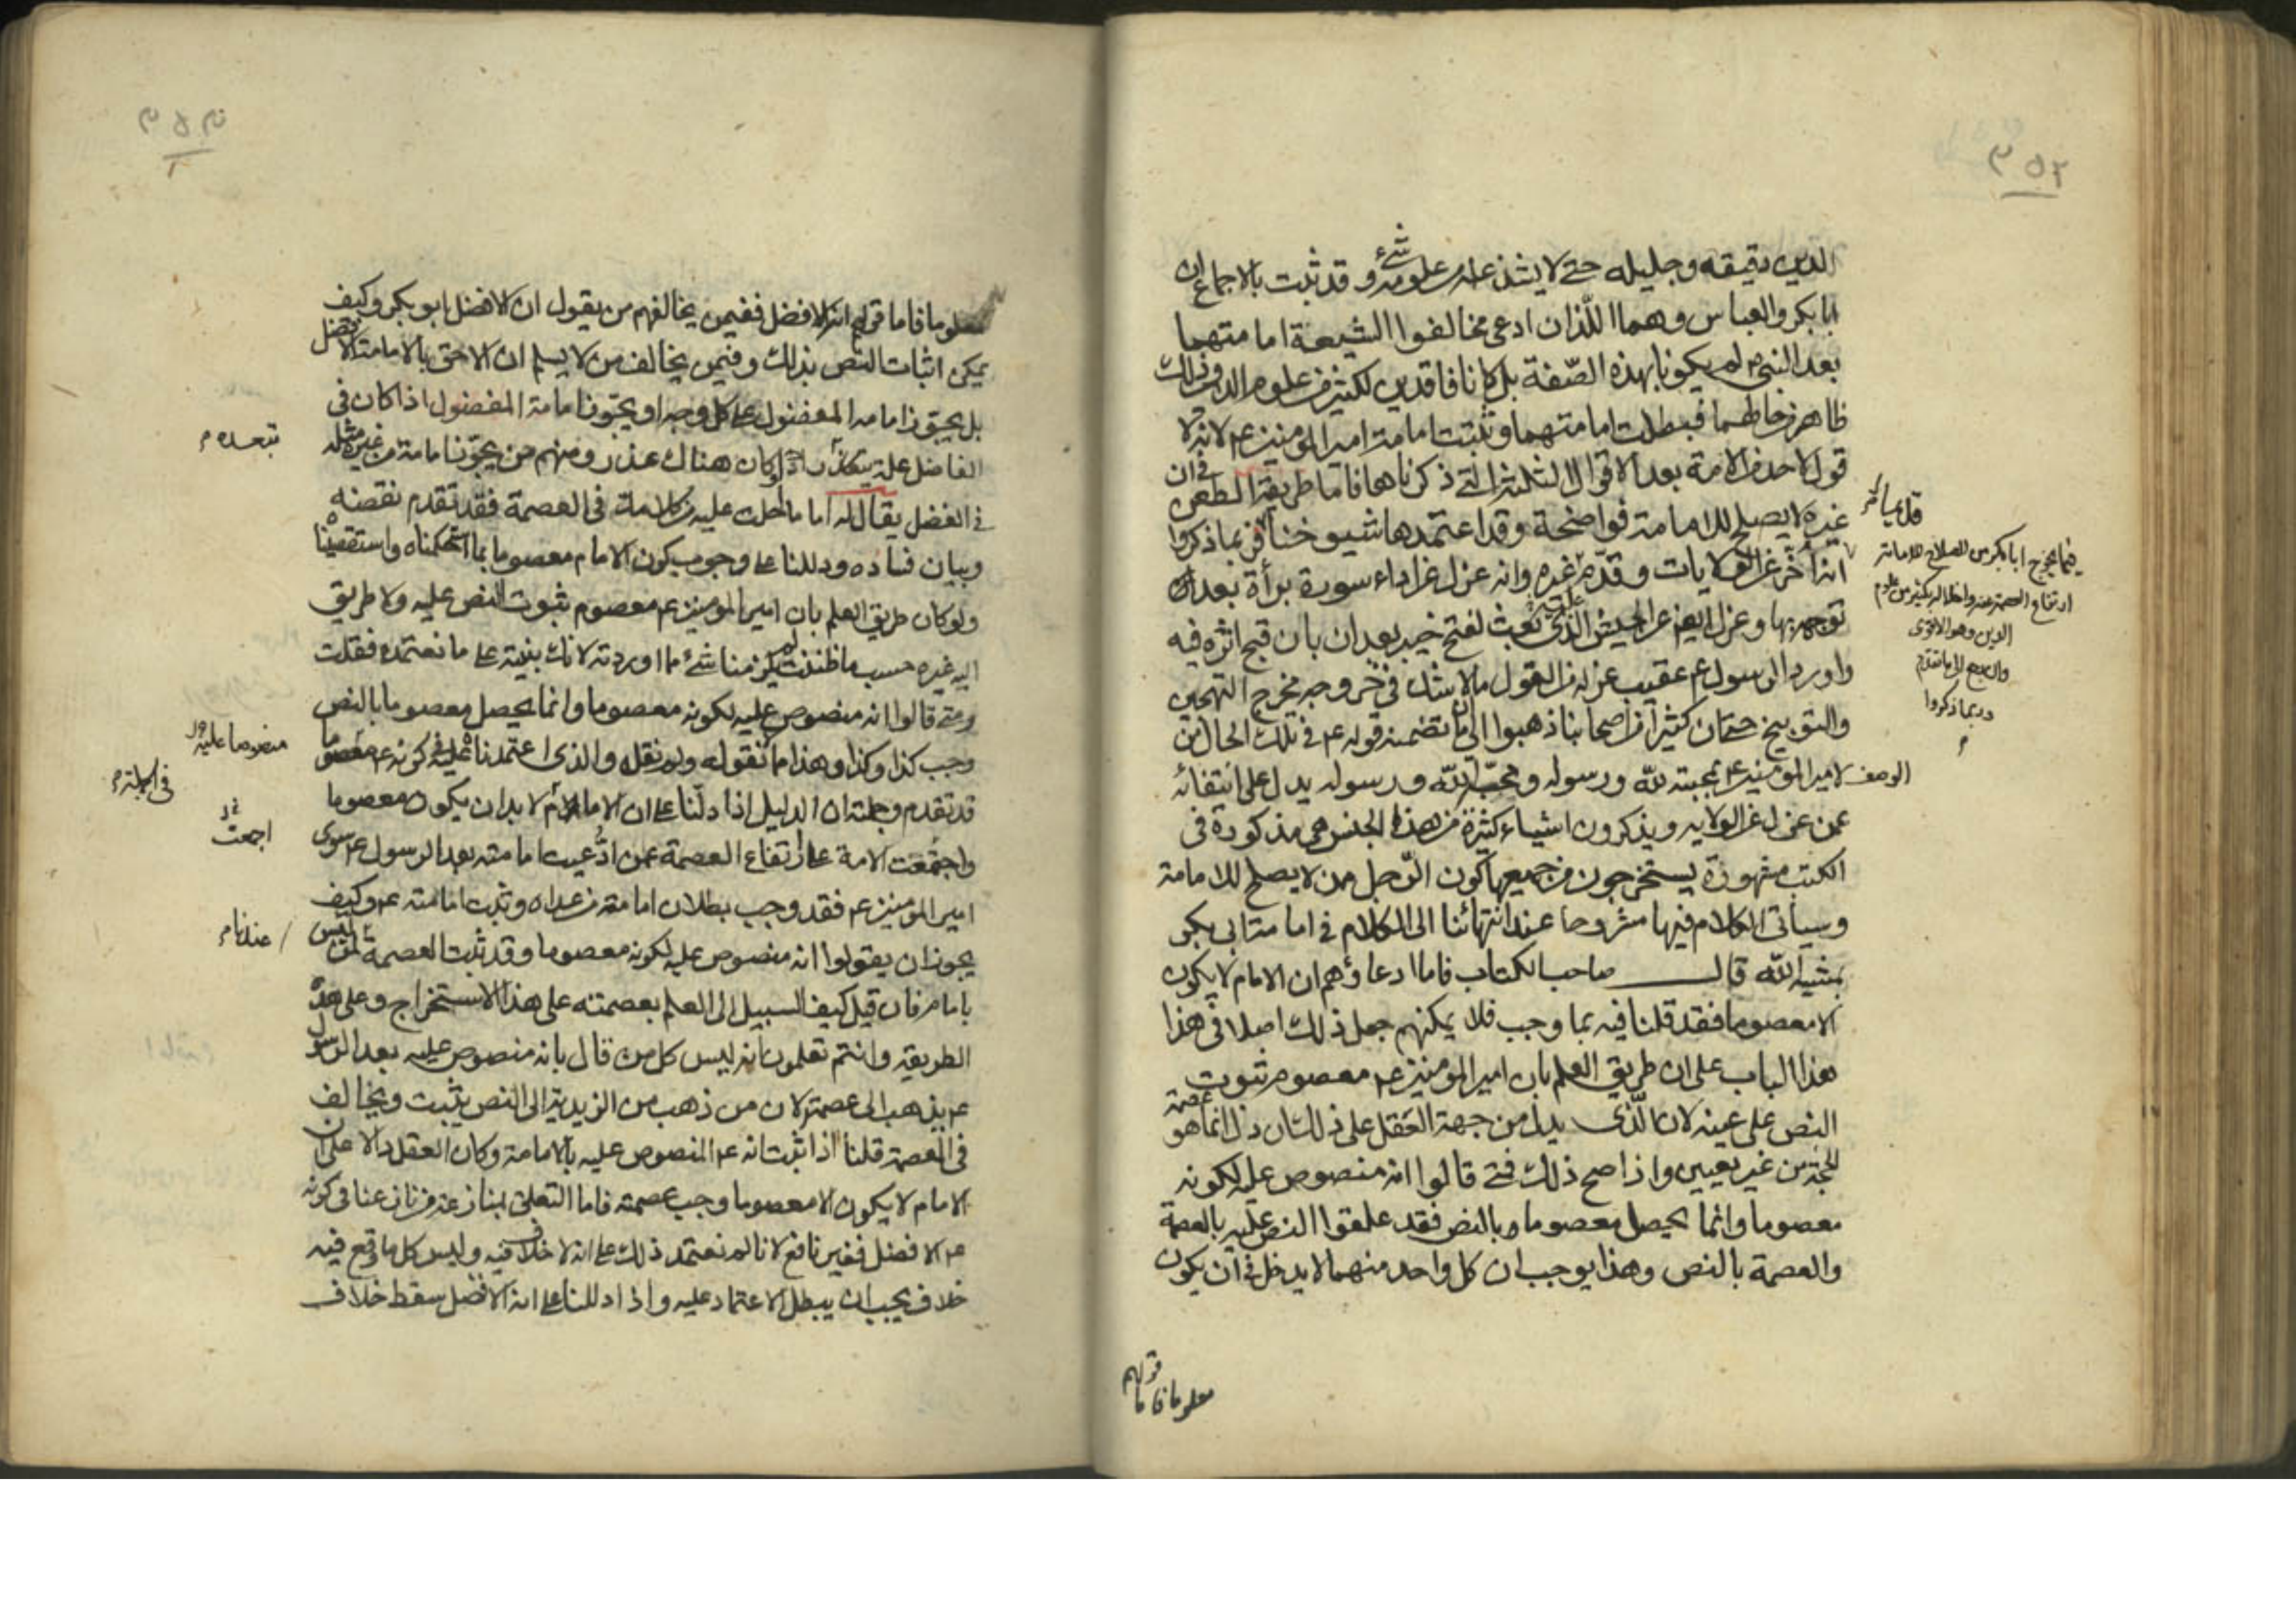 ٣٥٢
الدين دقيقه وجليله حتى لا يشذ عنه علومه شئ وقد ثبت بالاجماع ان
ابابكر والعباس وهما اللّذان ادعى مخالفوا الشيعة امامتهما
بعد النبي ص لم يكونا بهذه الصّفة بل كانا فاقدين لكثير من علوم الدين وذلك
ظاهر من حالهما فبطلت امامتهما وثبتت امامة امير المؤمنين ع م لانه لا
قول لاحد من الامة بعد الاقوال الثلثة التي ذكرناها فاما طريقة الطعن في ان
غيره لا يصلح للامامة فواضحة وقد اعتمدها شيوخنا فربما ذكروا
انه أخّر عن الولايات وقدّم غيره وانه عزل عن اداء سورة برأة بعد ان
توجه بها وعزل ايضا عن الجيش الذي بعث لفتح خيبر بعد ان بان قبح اثره فيه
واورد الرسول ع م عقيب عزله من القول ما لا شك في خروجه مخرج التهجين
والتوبيخ حتى ان كثيرا من اصحابنا ذهبوا الى ان ما تضمنه قوله ع م في تلك الحال من
الوصف لامير المؤمنين ع م بمحبته لله ورسوله ومحبة الله ورسوله يدل على انتفائه
عمن عزل عن الولاية ويذكرون اشياء كثيرة من هذا الجنس هي مذكورة في
الكتب مشهورة يستخرجون من جميعها كون الرّجل ممن لا يصلح للامامة
وسيأتي الكلام فيها مشروحا عند انتهائنا الى الكلام في امامة ابي بكر
بمشية الله قال صاحب الكتاب فاما ادعاؤهم ان الامام لا يكون
الا معصوما فقد قلنا فيه بما وجب فلا يمكنهم جعل ذلك اصلا في هذا
هذا الباب على ان طريق العلم بان امير المؤمنين ع م معصوم ثبوت
النص على عينه لان الّذى يدل من جهة العَقل على ذلك ان دل انما هو عصمة
الحجة من غير تعيين واذا صح ذلك فمتى قالوا انه منصوص عليه لكونه
معصوما وانما يحصل معصوما بالنص فقد علقوا النص عليه بالعصمة
والعصمة بالنص وهذا يوجب ان كل واحد منهما لا يدخل في ان يكون
فيما يخرج ابابكر من الصلاح للامامة
ارتفاع العصمة عنه واخلاله بكثير من علوم
الدين وهو الاقوى
والراجع الى ما تقدم
وربما ذكروا
معلوما فاما
قولهم
معلوما فاما قولهم انه الافضل ففيمن يخالفهم من يقول ان الافضل ابو بكر وكيف
يمكن اثبات النص بذلك وفيمن يخالف من لا يسلم ان الاحق بالامامة الافضل
بل يجوز امامة المفضول على كل وجه او يجوز امامة المفضول اذا كان في
الفاضل علة او كان هناك عذر ومنهم من يجوز امامة من غيره مثله
في الفضل يقال له اما ما احلت عليه من كلامك في العصمة فقد تقدم نقضه
وبيان فساده ودللنا على وجوب كون الامام معصوما بما احكمناه واستقصيناه
ولو كان طريق العلم بان امير المؤمنين ع م معصوم ثبوت النص عليه ولا طريق
اليه غيره حسب ما ظننت لم يكن منا شئ مما اوردته لانك بنيته على ما نعتمده فقلت
ومتى قالوا انه منصوص عليه لكونه معصوما وانما يحصل معصوما بالنص
وجب كذا وكذا وهذا ما نقوله ولم نقله والذي اعتمدناه عليه في كونه ع م معصوما
قد تقدم وجملته ان الدليل اذا دلّنا على ان الامام لا بد ان يكون معصوما
واجتمعت الامة على ارتفاع العصمة عمن ادُّعيت امامته بعد الرسول ع م سوى
امير المؤمنين ع م فقد وجب بطلان امامة من عداه وثبت امامته ع م وكيف
يجوز ان يقولوا انه منصوص عليه لكونه معصوما وقد ثبت العصمة لمن ليس
بامام فان قيل كيف السبيل الى العلم بعصمته على هذا الاستخراج وعلى هذه
الطريقة وانتم تعلمون انه ليس كل من قال بانه منصوص عليه بعد الرسول
ع م يذهب الى عصمته لان من ذهب من الزيدية الى النص يثبت ويخالف
في العصمة قلنا اذا ثبت انه ع م المنصوص عليه بالامامة وكان العقل دالا على ان
الامام لا يكون الا معصوما وجب عصمته فاما التعلق بمنازعة من نازعنا في كونه
ع م الافضل فغير نافع لانا لم نعتمد ذلك على انه لا خلاف فيه وليس كل ما وقع فيه
خلاف يجب ان يبطل الاعتماد عليه واذا دللنا على انه الافضل سقط خلاف
منصوصا عليه
في الجملة
اجمعت
عندنا م